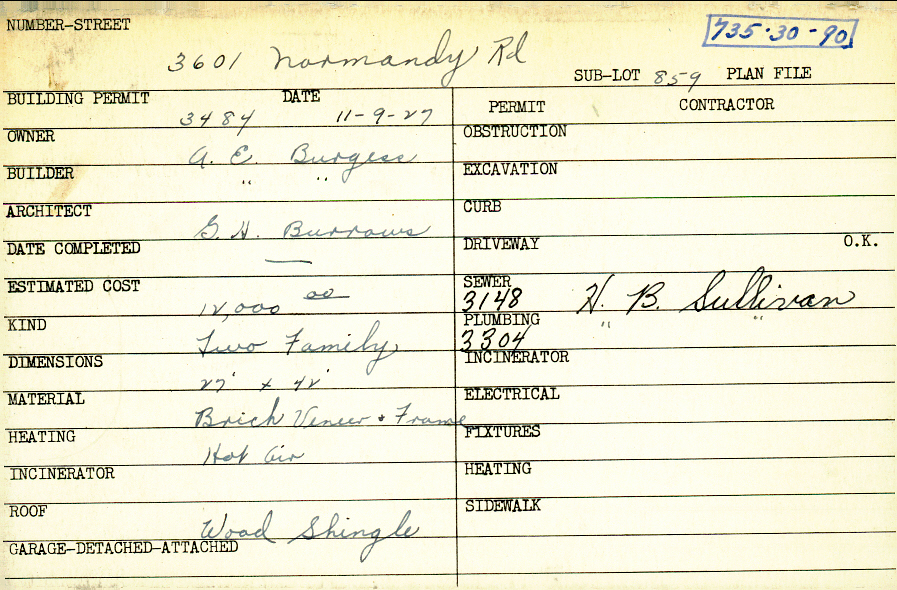 NUMBER-STREET
735·30-90
3601 Normandy Rd
SUB-LOT 859 PLAN FILE
BUILDING PERMIT DATE
3484 11-9-27
OWNER
A. E. Burgess
BUILDER
" "
ARCHITECT
G. H. Burrows
DATE COMPLETED
—
ESTIMATED COST
12,000 00
KIND
Two Family
DIMENSIONS
27' x 42'
MATERIAL
Brick Veneer & Frame
HEATING
Hot Air
INCINERATOR
ROOF
Wood Shingle
GARAGE-DETACHED-ATTACHED
PERMIT CONTRACTOR
OBSTRUCTION
EXCAVATION
CURB
DRIVEWAY O.K.
SEWER
3148 H. B. Sullivan
PLUMBING
3304 " "
INCINERATOR
ELECTRICAL
FIXTURES
HEATING
SIDEWALK